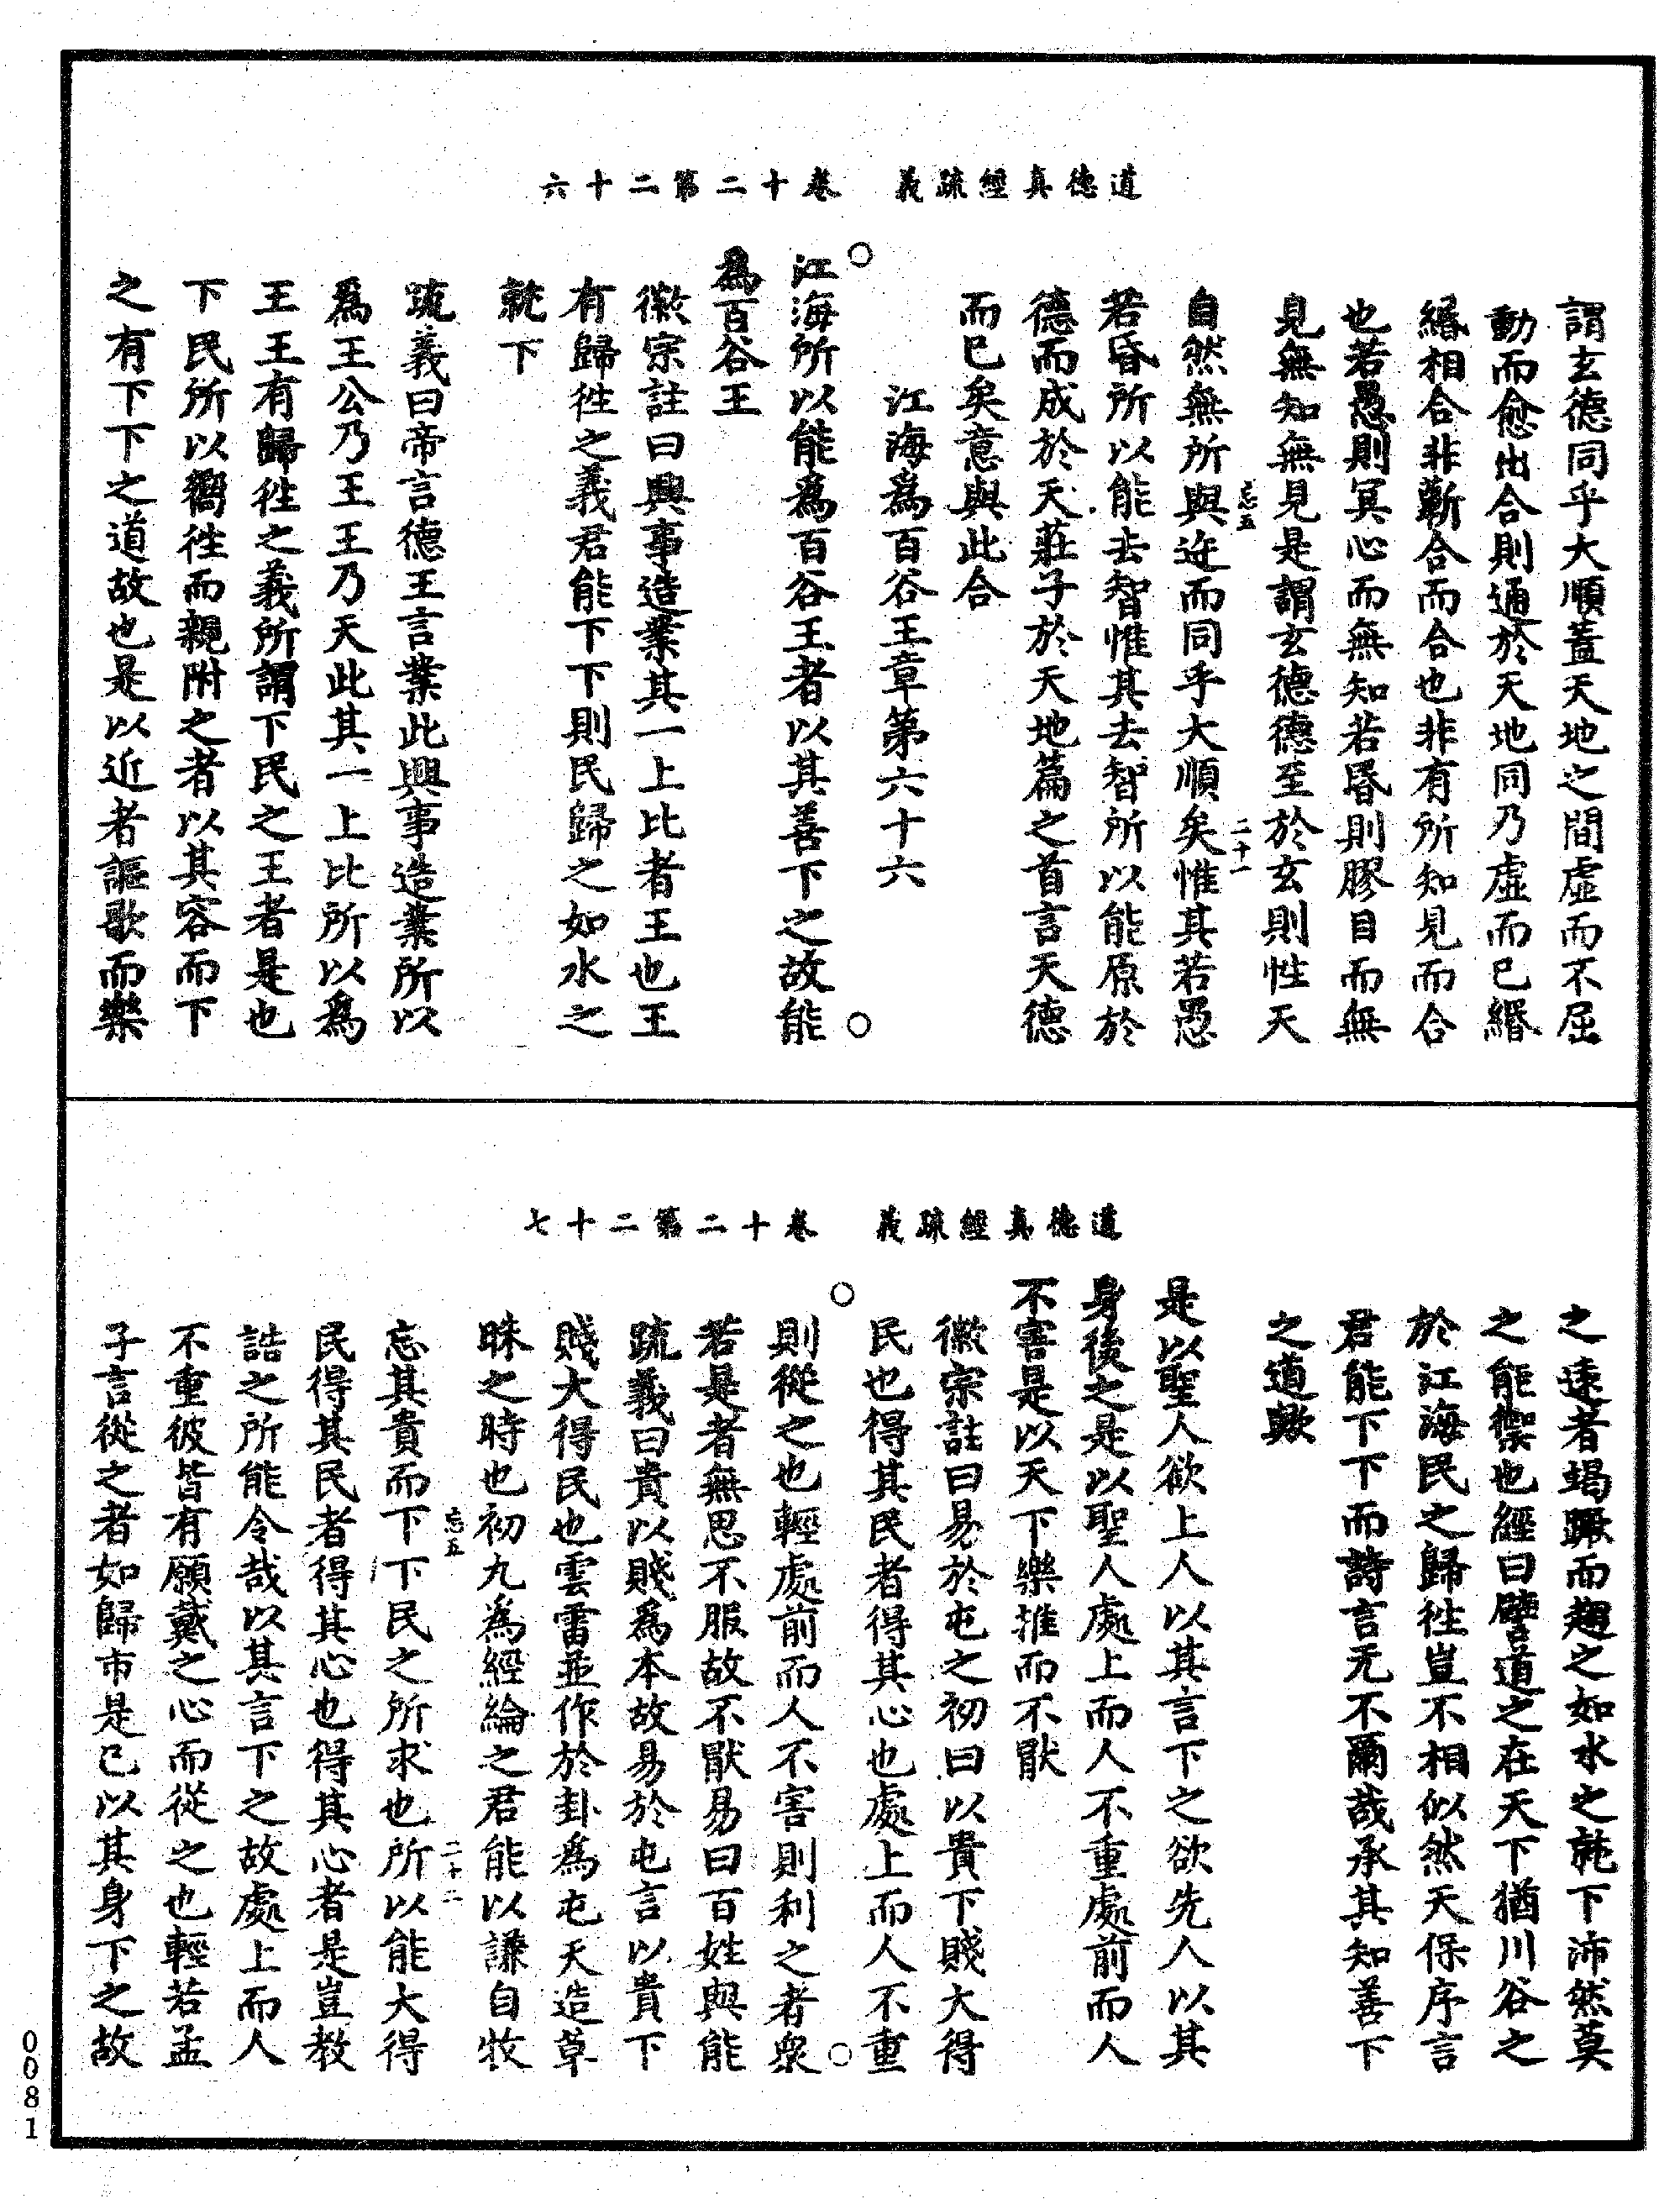 道德真經疏義　卷十二第二十六
謂玄德同乎大順蓋天地之間虛而不屈
動而愈出合則通於天地同乃虛而已緡
緡相合非蘄合而合也非有所知見而合
也若愚則冥心而無知若昬則膠目而無
見無知無見是謂玄德德至於玄則性天
忘五　二十一
自然無所與迕而同乎大順矣惟其若愚
若昏所以能去智惟其去智所以能原於
德而成於天莊子於天地篇之首言天德
而已矣意與此合
江海爲百谷王章第六十六
江海所以能爲百谷王者以其善下之故能
爲百谷王
徽宗註曰興事造業其一上比者王也王
有歸徃之義君能下下則民歸之如水之
就下
疏義曰帝言德王言業此興事造業所以
爲王公乃王王乃天此其一上比所以爲
王王有歸徃之義所謂下民之王者是也
下民所以嚮徃而親附之者以其容而下
之有下下之道故也是以近者謳歌而樂
道德真經疏義　卷十二第二十七
之遠者竭蹶而趨之如水之就下沛然莫
之能禦也經曰譬道之在天下猶川谷之
於江海民之歸徃豈不相似然天保序言
君能下下而詩言无不爾哉承其知善下
之道歟
是以聖人欲上人以其言下之欲先人以其
身後之是以聖人處上而人不重處前而人
不害是以天下樂推而不厭
徽宗註曰易於屯之初曰以貴下賤大得
民也得其民者得其心也處上而人不重
則從之也輕處前而人不害則利之者衆
若是者無思不服故不厭易曰百姓與能
疏義曰貴以賤爲本故易於屯言以貴下
賤大得民也雲雷並作於卦爲屯天造草
昧之時也初九為經綸之君能以謙自牧
忘五　二十二
忘其貴而下下民之所求也所以能大得
民得其民者得其心也得其心者是豈教
誥之所能令哉以其言下之故處上而人
不重彼皆有願戴之心而從之也輕若孟
子言從之者如歸市是已以其身下之故
0081